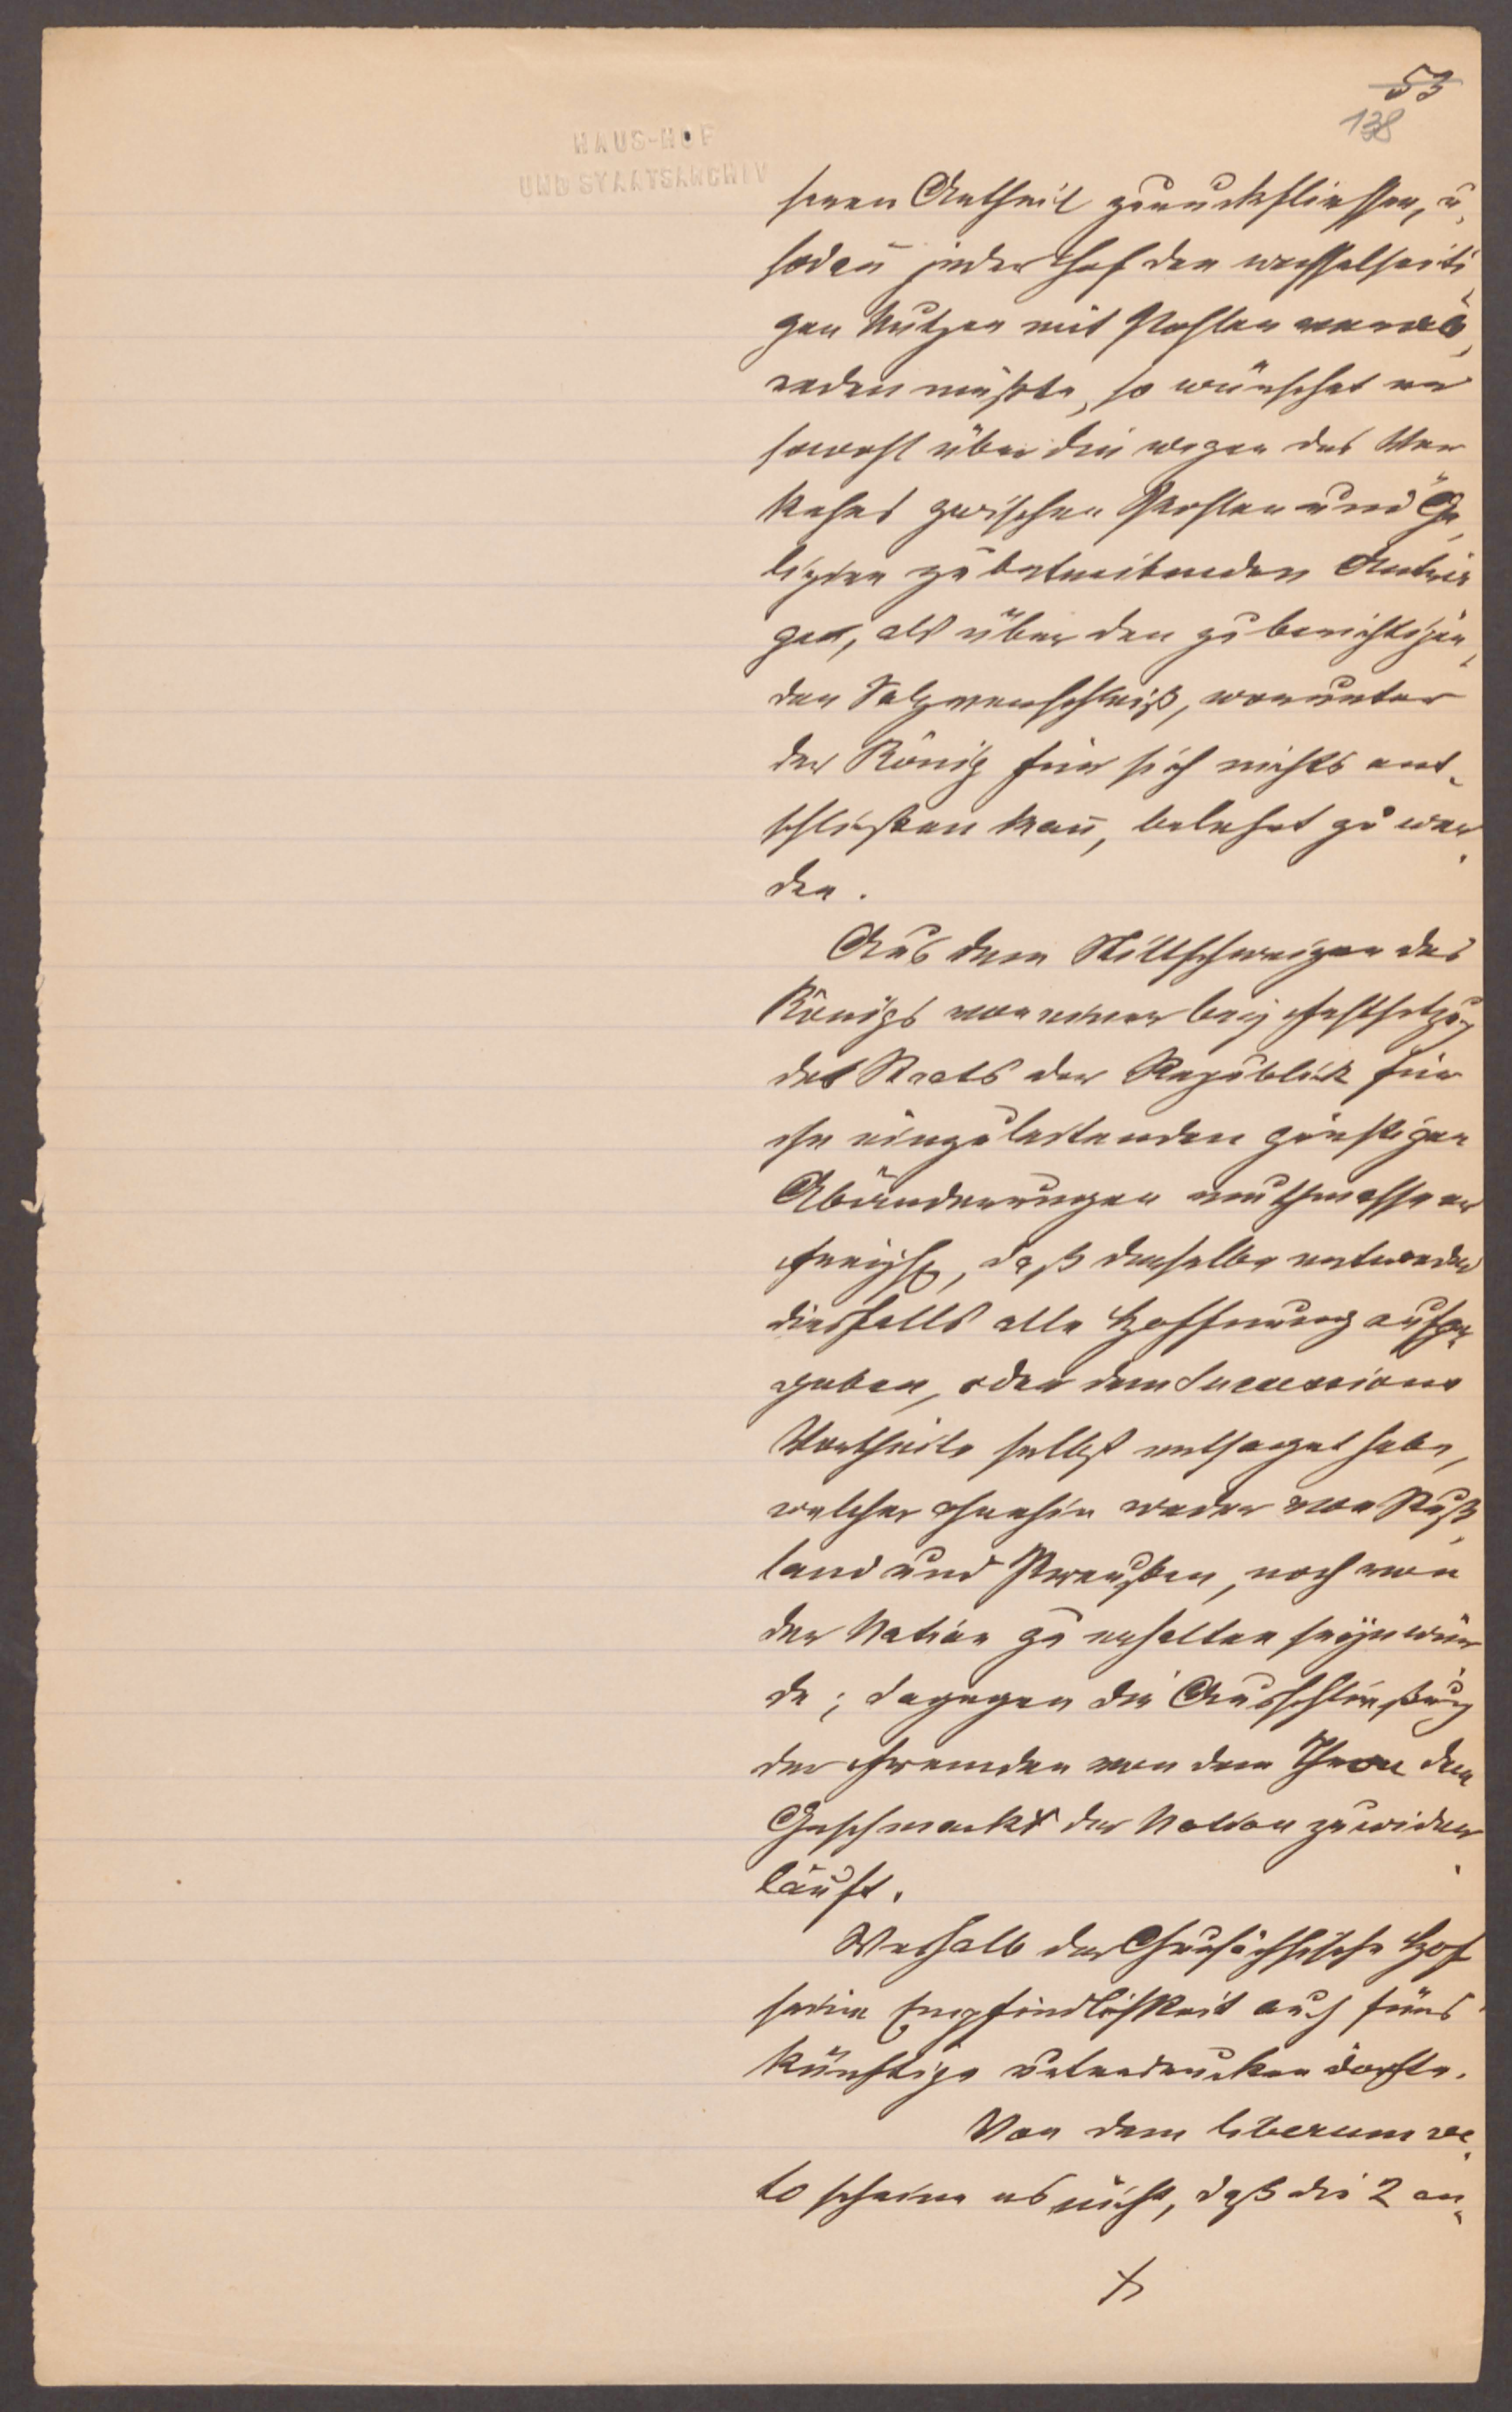 53
138
HAUS-HOF
UND STAATSARCHIV
seren Antheil zurückfliessen, u.
sodan̄ jeder Hof den wechselseiti
gen Nutzen mit Pohlen verab,
reden müßte, so wünschet er
sowohl über die wegen des Ver
kehrs zwischen Pohlen und Ga,
lizien zu betreibenden Anträ
gen, als über den zu berichtigen,
den Salzverschleiß, worunter
der König für sich nichts ent,
schließen kan̄, belehrt zu wer
den.
Aus dem Stillschweigen des
Königs von einer bey Festsetzung
des Staats der Republik für
ihn einzuleitenden günstigen
Abänderungen muthmasse er
, daß derselbe entweder
diesfalls alle Hoffnung aufge
geben, oder dem Successions
Vortheile selbst entsaget habe,
welcher ohnehin weder von Ruß,
land und Preußen, noch von
der Nation zu erhalten seyn wür
de; dagegen die Ausschließung
der Fremden von dem Thron dem
Geschmack der Nation zuwider
läuft.
Weshalb der Chursächsische Hof
seine Empfindlichkeit auch fürs
künftige unterdrucken dörfte.
Von dem liberum ve,
to scheine es nicht, daß die 2 an,